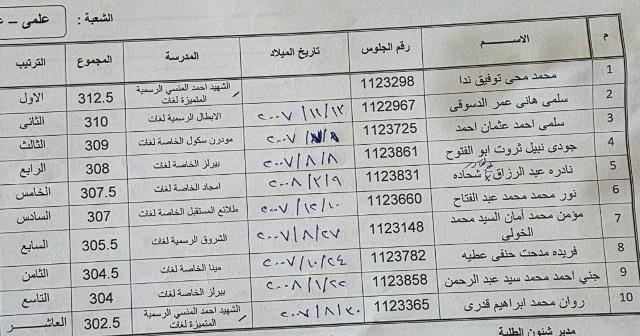 الشعبة : علمى –
م الاســـم رقم الجلوس تاريخ الميلاد المدرسة المجموع الترتيب
1 محمد محى توفيق ندا 1123298 الشهيد احمد المنسي الرسمية المتميزة لغات 312.5 الاول
2 سلمى هانى عمر الدسوقى 1122967 ٢٠٠٧/١١/١٣ الابطال الرسمية لغات 310 الثانى
3 سلمى احمد عثمان احمد 1123725 مودرن سكول الخاصة لغات 309 الثالث
4 جودى نبيل ثروت ابو الفتوح 1123861 ٢٠٠٧/٨/٨ بيرلز الخاصة لغات 308 الرابع
5 نادره عبد الرزاق شحاده 1123831 ٢٠٠٨/٢/٩ امجاد الخاصة لغات 307.5 الخامس
6 نور محمد محمد عبد الفتاح 1123660 ٢٠٠٧/١٢/١٠ طلائع المستقبل الخاصة لغات 307 السادس
7 مؤمن محمد أمان السيد محمد الخولى 1123148 ٢٠٠٧/٨/٢٧ الشروق الرسمية لغات 305.5 السابع
8 فريده مدحت حنفى عطيه 1123782 ٢٠٠٧/١٠/٢٤ مينا الخاصة لغات 304.5 الثامن
9 جني احمد محمد سيد عبد الرحمن 1123858 ٢٠٠٨/١/٢٢ بيرلز الخاصة لغات 304 التاسع
10 روان محمد ابراهيم قدرى 1123365 ٢٠٠٧/٨/٢٠ الشهيد احمد المنسي الرسمية المتميزة لغات 302.5 العاشـــر
مدير شئون الطلبة